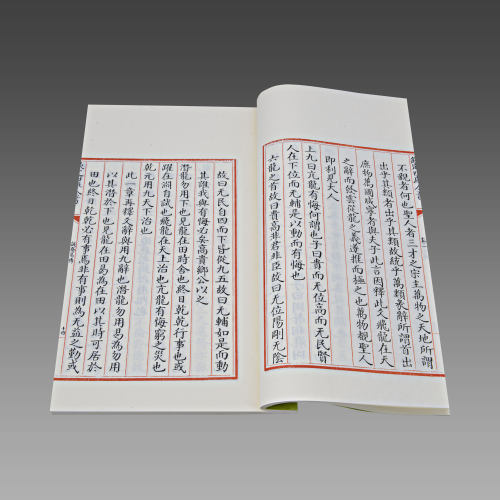 不觀者何也聖人者三才之宗主萬物之天地所謂
出乎其類者出乎其類故統乎萬類彖辭所謂首出
庶物萬國咸寧者與夫子此言因釋此爻飛龍在天
之辭而發雲從龍之義遂推而極之也萬物覩聖人
即利見大人
上九曰亢龍有悔何謂也子曰貴而无位高而无民賢
人在下位而无輔是以動而有悔也
六龍之首故曰貴高非君非臣故曰无位陽剛无陰
故曰无民自四而下皆從九五故曰无輔如是而動
其誰我與有悔必矣高貴鄉公以之
潛龍勿用下也見龍在田時舍也終日乾乾行事也或
躍在淵自試也飛龍在天上治也亢龍有悔窮之災也
乾元用九天下治也
此一章再釋爻辭與用九辭也潛龍勿用曷為勿用
以其潛於下也見龍在田曷為在田以其時可居於
田也終日乾乾必有事焉非有事則為无益之勤或